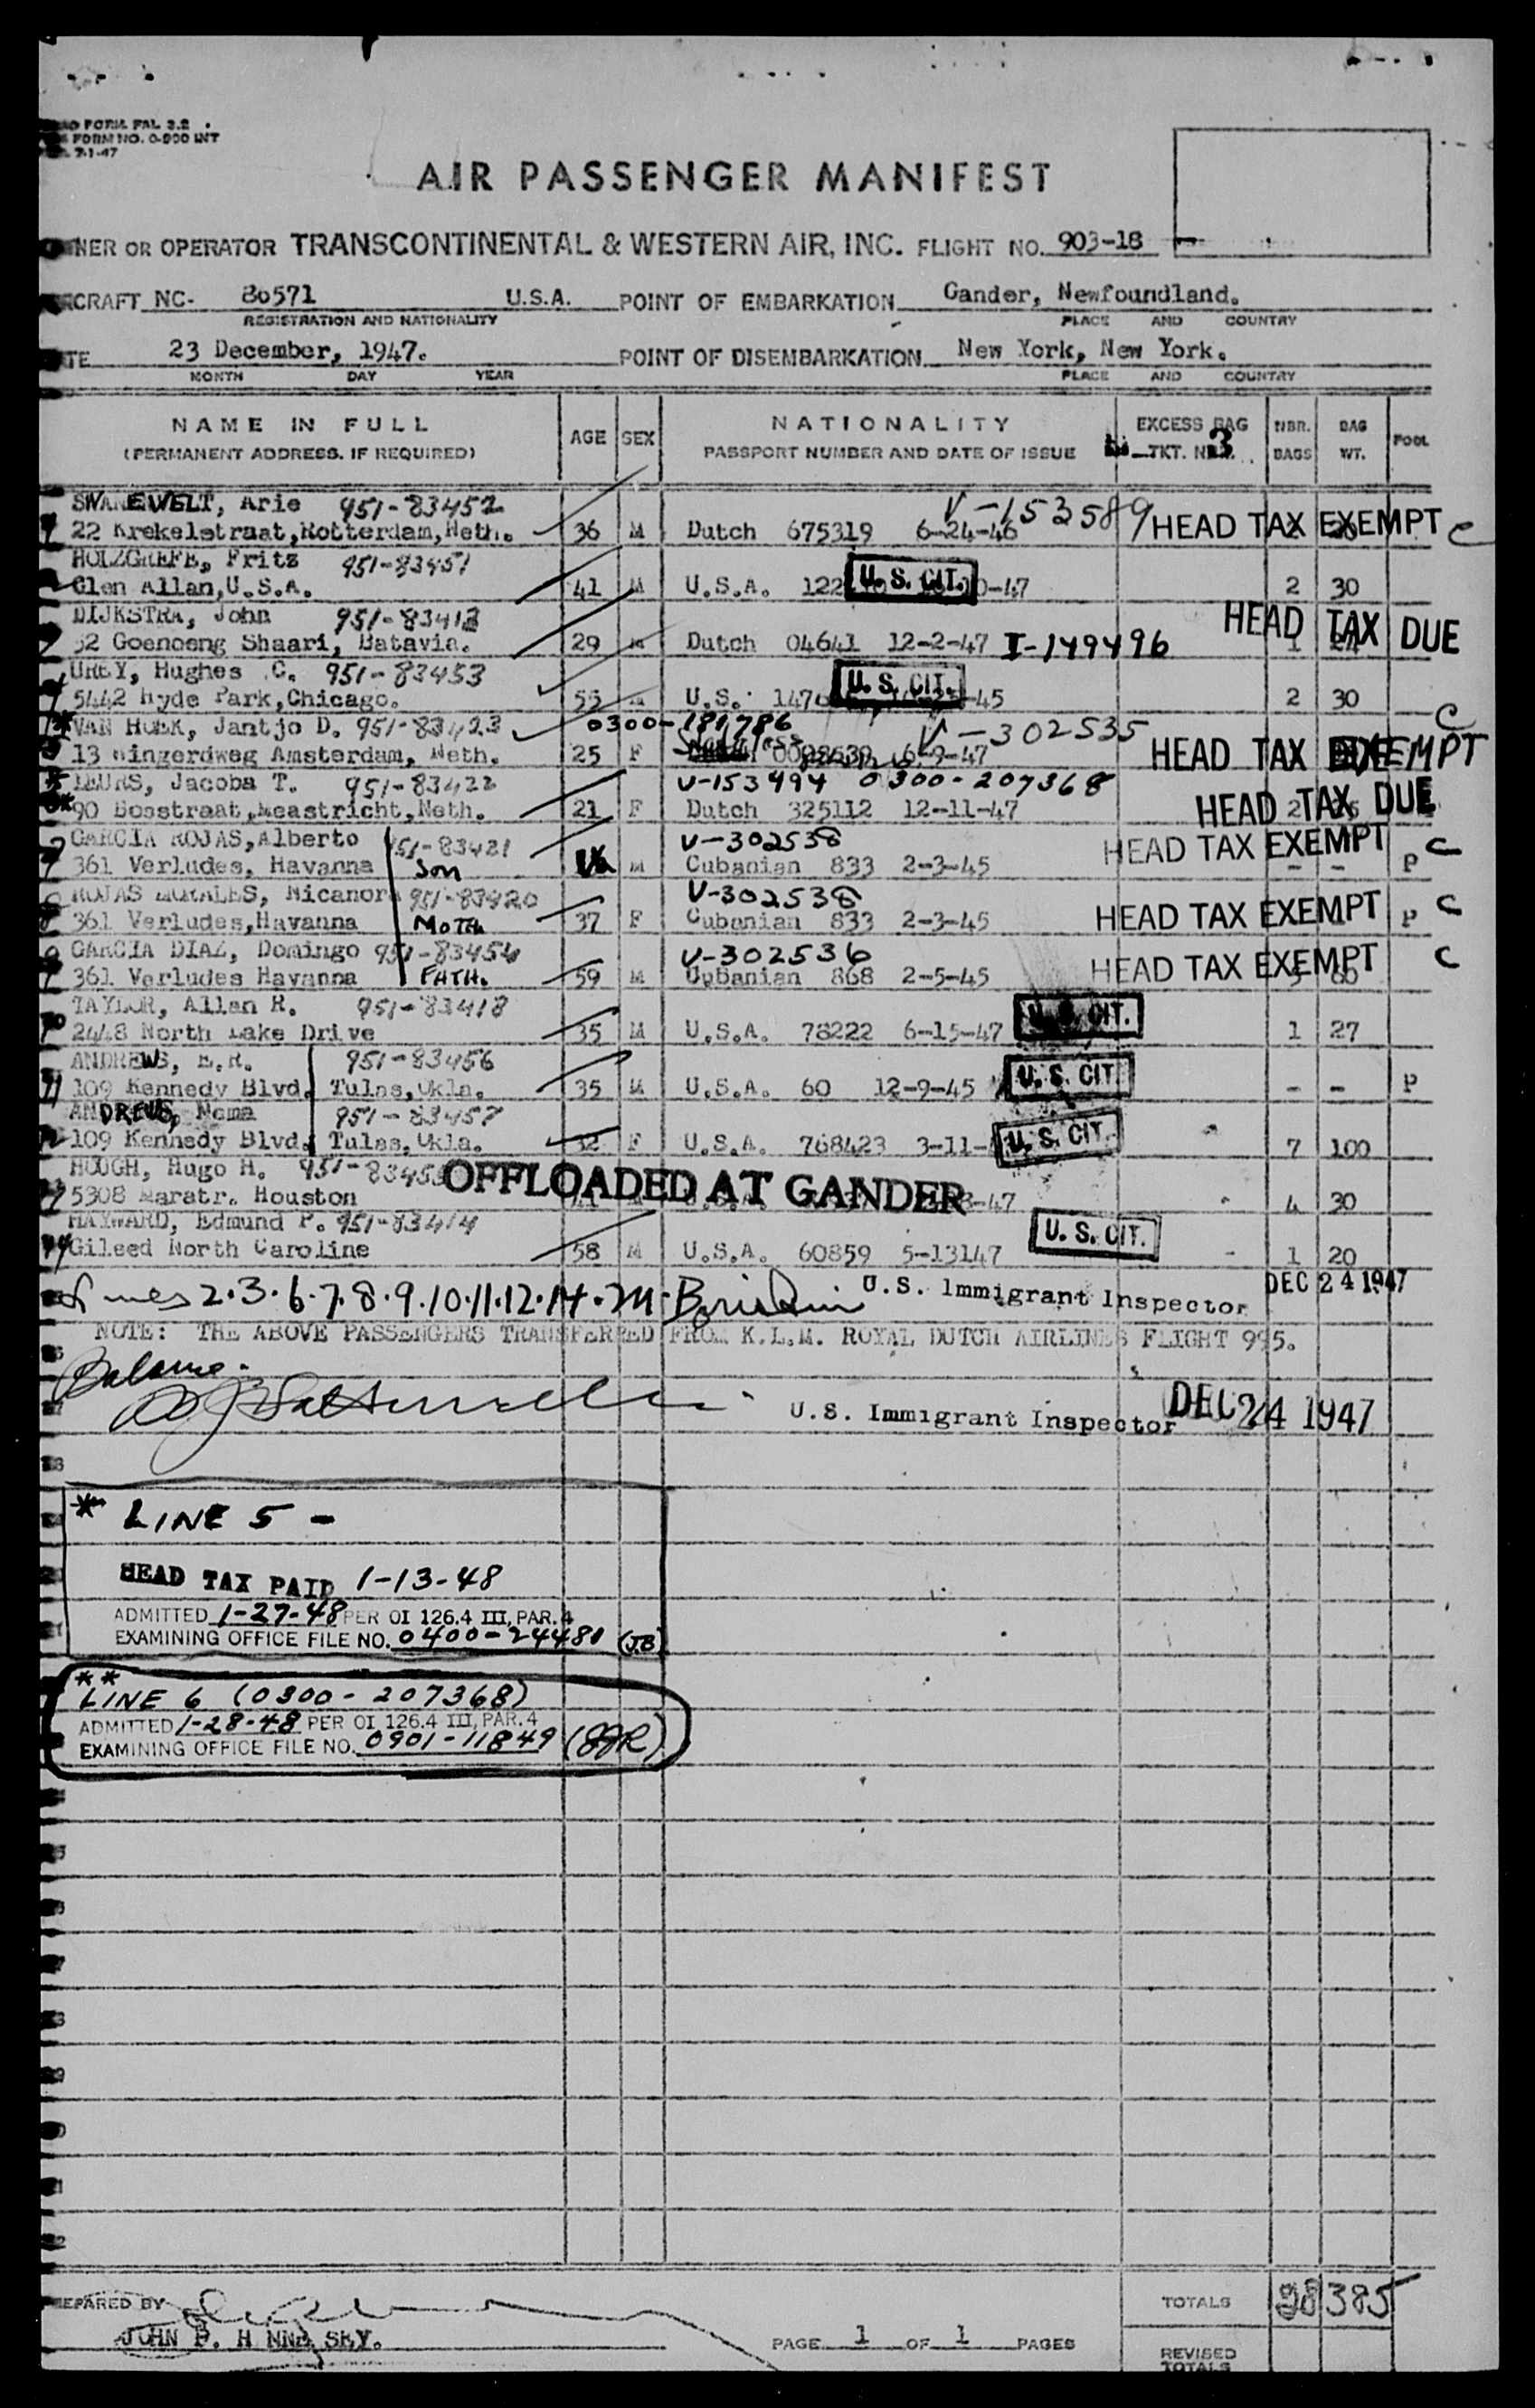 FORM PAL 3.2
FORM NO. 0-900 INT
7-1-47
AIR PASSENGER MANIFEST
NER OR OPERATOR TRANSCONTINENTAL & WESTERN AIR, INC. FLIGHT NO. 903-18
RCRAFT NC- 80571 U.S.A. POINT OF EMBARKATION Gander, Newfoundland.
REGISTRATION AND NATIONALITY PLACE AND COUNTRY
TE 23 December, 1947. POINT OF DISEMBARKATION New York, New York.
MONTH DAY YEAR PLACE AND COUNTRY
NAME IN FULL AGE SEX NATIONALITY EXCESS BAG NBR. BAG POOL
(PERMANENT ADDRESS. IF REQUIRED) PASSPORT NUMBER AND DATE OF ISSUE TKT. 3 BAGS WT.
SWANEWELT, Arie 951-83452 V-153589
22 Krekelstraat, Rotterdam, Neth. 36 M Dutch 675319 6-24-46 HEAD TAX EXEMPT C
HOLZGREFE, Fritz 951-83451
Glen Allan, U.S.A. 41 M U.S.A. 122 U.S. CIT. 0-47 2 30
DIJKSTRA, John 951-83413 HEAD TAX DUE
52 Goenoeng Shaari, Batavia. 29 M Dutch 04641 12-2-47 I-149496 1
UREY, Hughes C. 951-83453
5442 Hyde Park, Chicago. 55 M U.S. 1470 U.S. CIT. -45 2 30
* VAN HOEK, Jantjo D. 951-83423 0300-181786 V-302535 C
13 Wingerdweg Amsterdam, Neth. 25 F 6-9-47 HEAD TAX EXEMPT
LEURS, Jacoba T. 951-83422 V-153494 0300-207368
** 90 Bosstraat, Meastricht, Neth. 21 F Dutch 325112 12-11-47 HEAD TAX DUE
GARCIA ROJAS, Alberto 951-83421 V-302538 HEAD TAX EXEMPT C
361 Verludes, Havanna Son M Cubanian 833 2-3-45 - - P
ROJAS MORALES, Nicanora 951-83420 V-302538
361 Verludes, Havanna MOTH 37 F Cubanian 833 2-3-45 HEAD TAX EXEMPT P C
GARCIA DIAZ, Domingo 951-83454 V-302536
361 Verludes Havanna FATH. 59 M Cubanian 868 2-5-45 HEAD TAX EXEMPT 5 60 C
TAYLOR, Allan R. 951-83418
10 2448 North Lake Drive 35 M U.S.A. 78222 6-15-47 U.S. CIT. 1 27
ANDREWS, E.R. 951-83456
11 109 Kennedy Blvd. Tulas, Okla. 35 M U.S.A. 60 12-9-45 U.S. CIT. - - P
ANDREWS, Noma 951-83457
12 109 Kennedy Blvd. Tulas, Okla. 32 F U.S.A. 768423 3-11- U.S. CIT. 7 100
HOUGH, Hugo H. 951-83455 OFFLOADED AT GANDER
5308 Maratr. Houston 41 -47 4 30
HAYWARD, Edmund P. 951-83414
14 Gileed North Caroline 58 M U.S.A. 60859 5-13147 U.S. CIT. 1 20
Lines 2.3.6.7.8.9.10.11.12.14. U.S. Immigrant Inspector DEC 24 1947
NOTE: THE ABOVE PASSENGERS TRANSFERRED FROM K.L.M. ROYAL DUTCH AIRLINES FLIGHT 995.
Balance:
U.S. Immigrant Inspector DEC 24 1947
* LINE 5 -
HEAD TAX PAID 1-13-48
ADMITTED 1-27-48 PER OI 126.4 III, PAR. 4
EXAMINING OFFICE FILE NO. 0400-24481 (J.B)
**
LINE 6 (0300-207368)
ADMITTED 1-28-48 PER OI 126.4 III, PAR. 4
EXAMINING OFFICE FILE NO. 0901-11849 (JJR)
EPARED BY TOTALS 28 385
JOHN PAGE 1 OF 1 PAGES
REVISED
TOTALS